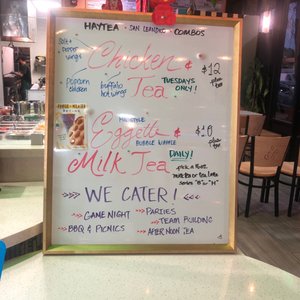 HAYTEA • SAN LEANDRO • COMBOS
Salt & Pepper wings
Chicken &
Tea
$12
plus tax
popcorn chicken
buffalo hot wings
TUESDAYS ONLY!
Eggette &
BUBBLE WAFFLE
$10
plus tax
Milk Tea
DAILY!
pick a plain
milk tea
series "B" or "H"
WE CATER!
GAME NIGHT
PARTIES
TEAM BUILDING
BBQ & PICNICS
AFTERNOON TEA